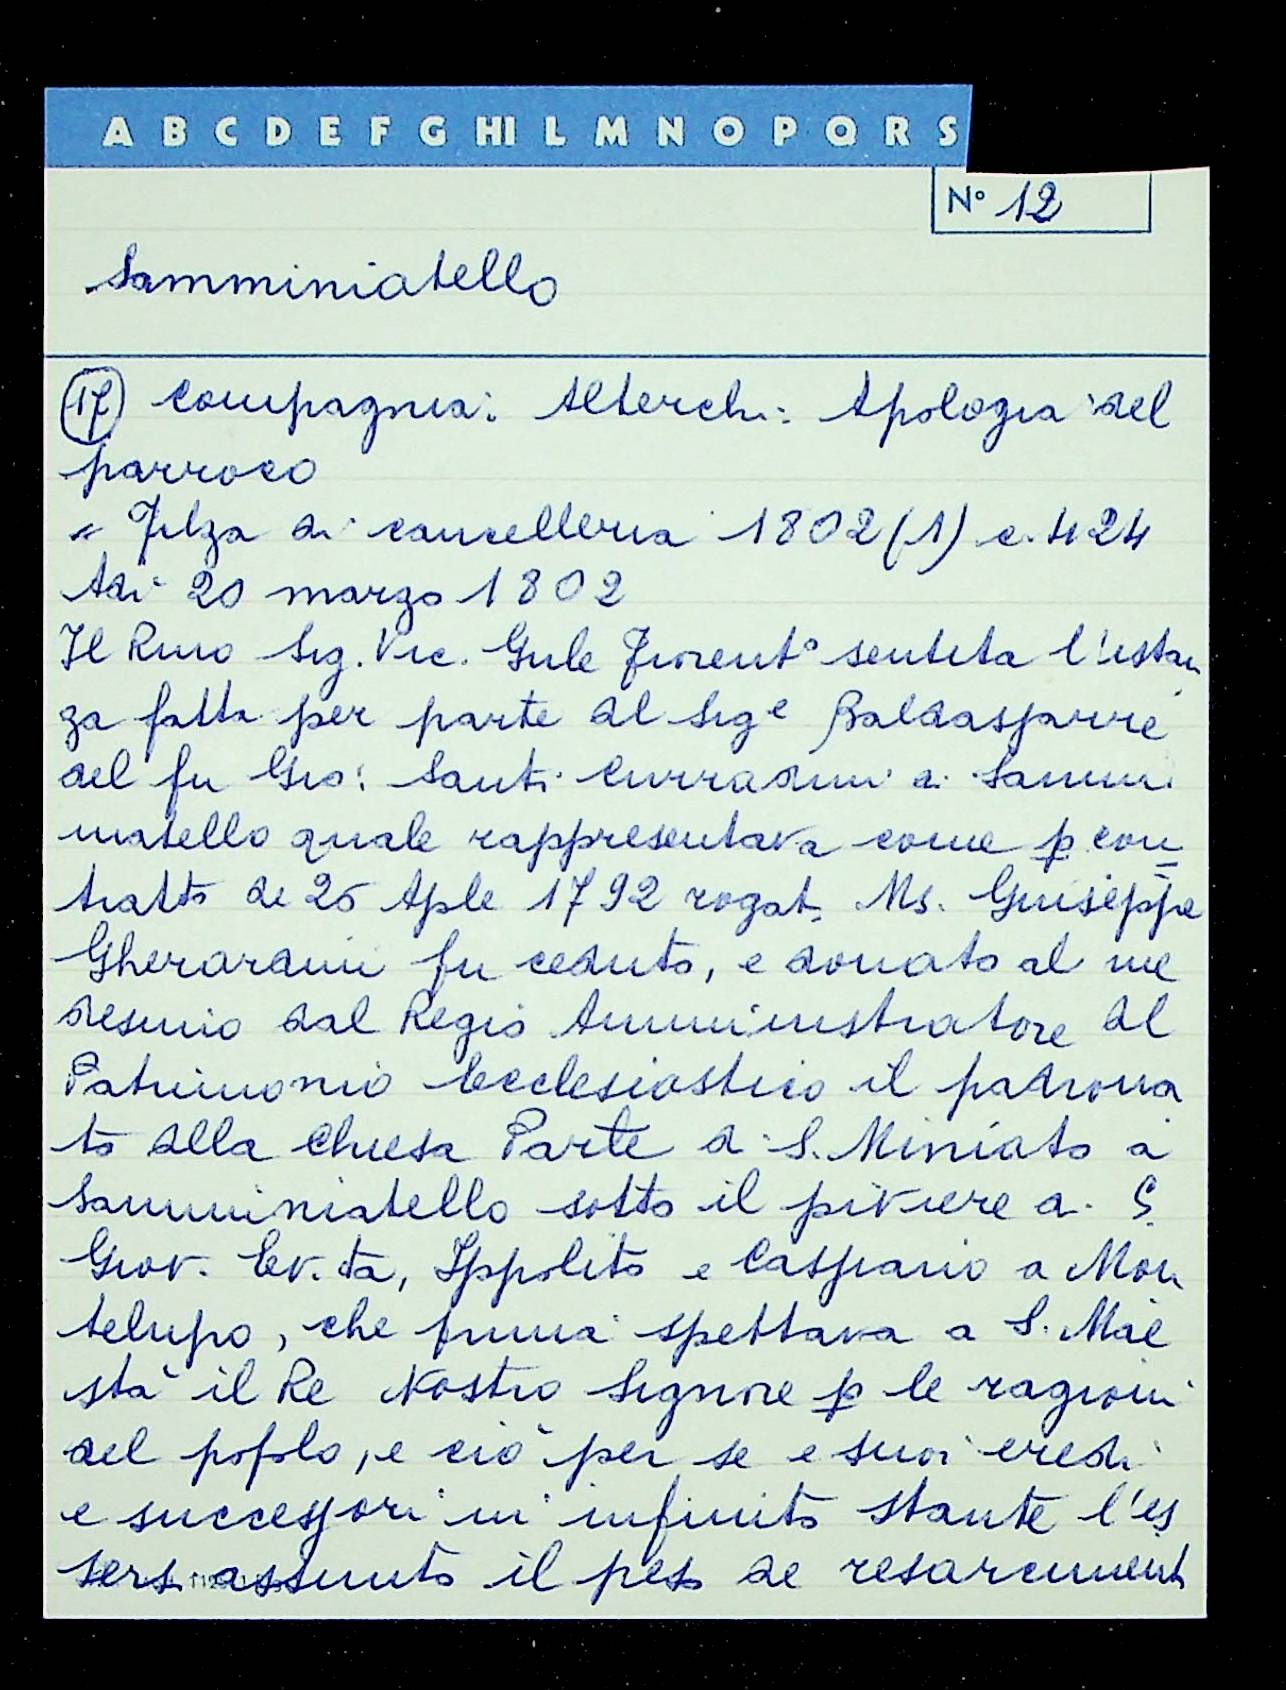 A B C D E F G HI L M N O P Q R S
N° 12
Samminiatello
(17) Compagnia: Alterchi: Apologia del
parroco
" Filza di cancelleria 1802 (1) c. 424
Adi 20 marzo 1802
Il Rmo Sig. Vic. Gnle Fiorent° sentita l'istan
za fatta per parte del Sige Baldassarre
del fu Gio: Santi Curradini di Sammi
niatello quale rappresentava come p con
tratto de 25 Aple 1792 rogat. Ms. Giuseppe
Gherardini fu ceduto, e donato al me
desimo dal Regio Amministratore del
Patrimonio Ecclesiastico il patrona
to della Chiesa Parle di S. Miniato a
Samminiatello sotto il piviere di S.
Giov. Ev.ta, Ippolito e Cassiano a Mon
telupo, che prima spettava a S. Mae
stà il Re Nostro Signore p le ragioni
del popolo, e ciò per se e suoi eredi
e successori in infinito stante l'es
sersi assunto il peso de resarcimenti